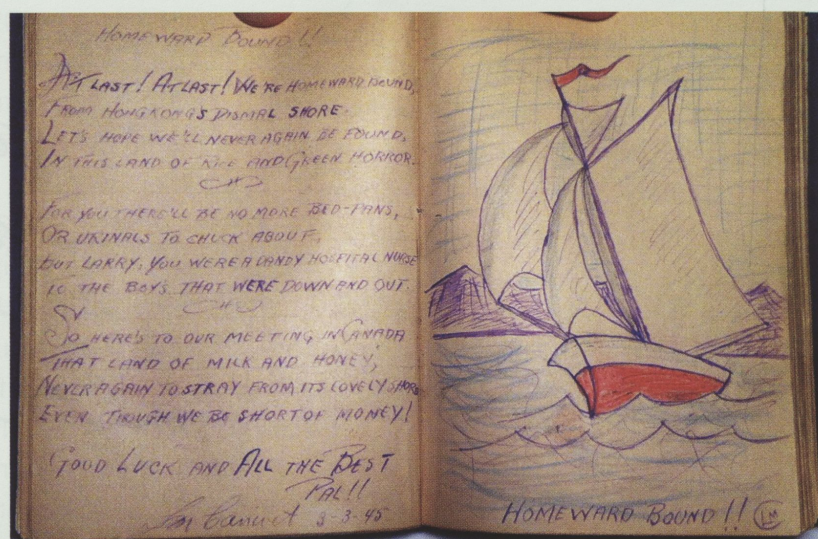 HOMEWARD BOUND!!
AT LAST! AT LAST! WE'RE HOMEWARD BOUND,
FROM HONGKONG'S DISMAL SHORE.
LET'S HOPE WE'LL NEVER AGAIN BE FOUND,
IN THIS LAND OF RICE AND GREEN HORROR.
FOR YOU THERE'LL BE NO MORE BED-PANS,
OR URINALS TO CHUCK ABOUT,
BUT LARRY, YOU WERE A DANDY HOSPITAL NURSE
TO THE BOYS THAT WERE DOWN AND OUT.
SO HERE'S TO OUR MEETING IN CANADA
THAT LAND OF MILK AND HONEY,
NEVER AGAIN TO STRAY FROM ITS LOVELY SHORE
EVEN THOUGH WE BE SHORT OF MONEY!
GOOD LUCK AND ALL THE BEST
PAL!!
3-3-45
HOMEWARD BOUND!! LM